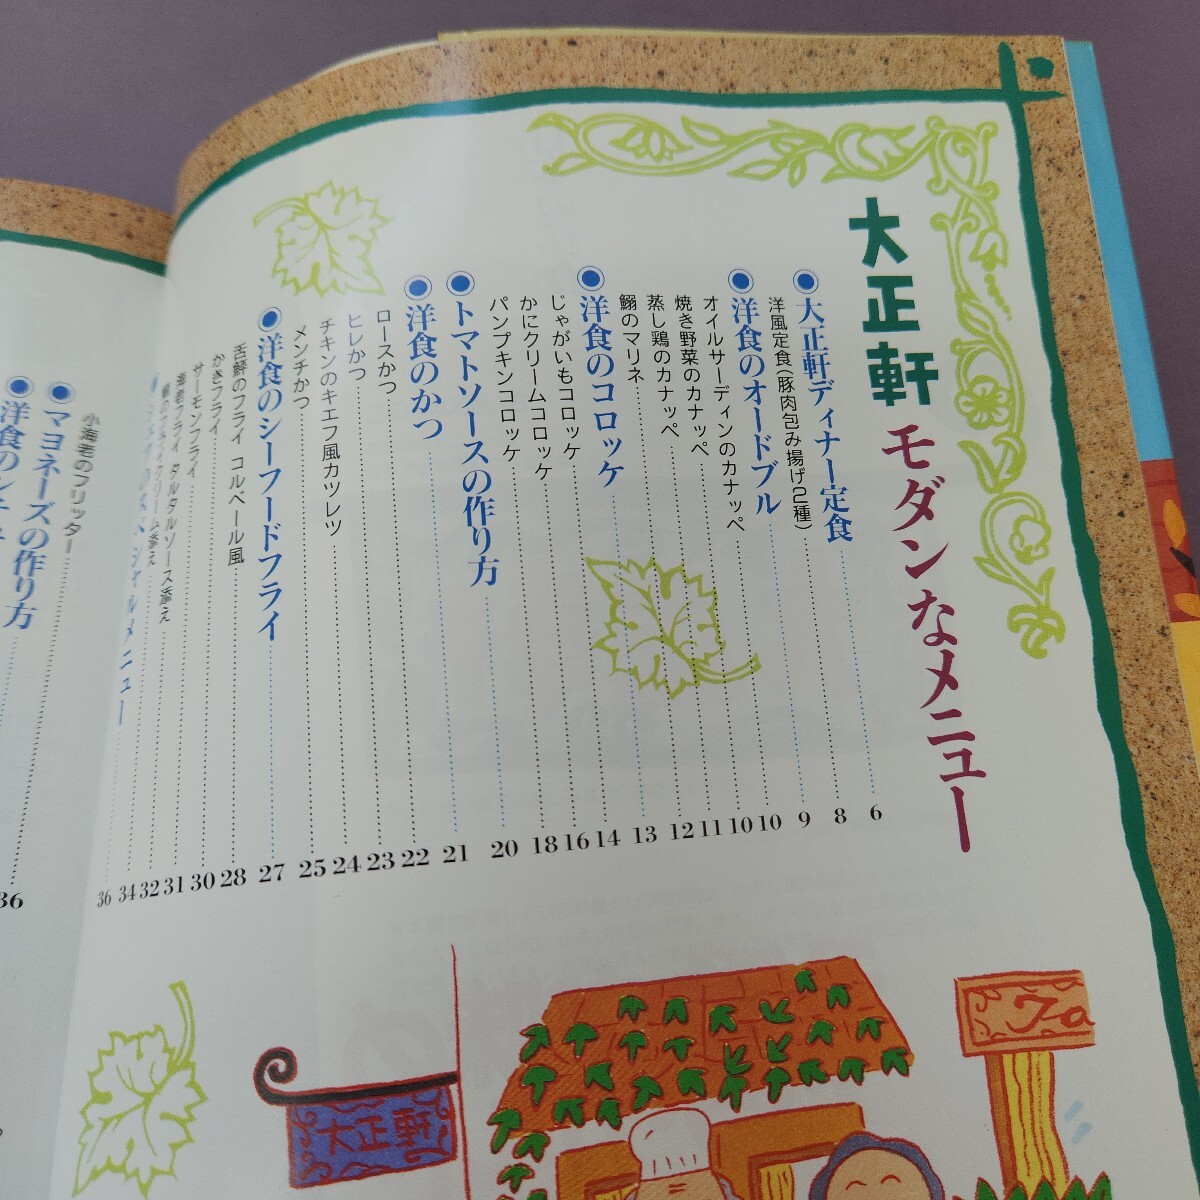 大正軒 モダンなメニュー
●大正軒ディナー定食 6
洋風定食(豚肉包み揚げ2種) 8
●洋食のオードブル 9
オイルサーディンのカナッペ 10
焼き野菜のカナッペ 10
蒸し鶏のカナッペ 11
鰯のマリネ 12
●洋食のコロッケ 13
じゃがいもコロッケ 14
かにクリームコロッケ 16
パンプキンコロッケ 18
●トマトソースの作り方 20
●洋食のかつ 21
ロースかつ 22
ヒレかつ 23
チキンのキエフ風カツレツ 24
メンチかつ 25
●洋食のシーフードフライ 27
舌鮃のフライ コルベール風 28
かきフライ 30
サーモンフライ 31
海老フライ タルタルソース添え 32
のフライ クリーム添え 34
メニュー 36
小海老のフリッター 36
●マヨネーズの作り方
●洋食の
大正軒
Ta